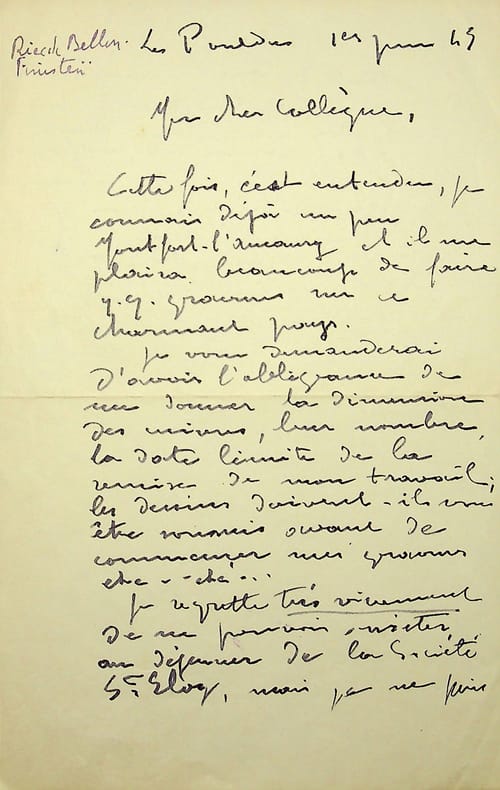 Riec s/ Bellon.
Finistère
Les Pouldu 1er juin 45
Mon cher Collègue,
Cette fois, c'est entendu, je
connais déjà un peu
Montfort-l'Amaury et il me
plaira beaucoup de faire
q.q. gravures sur ce
charmant pays.
Je vous demanderai
d'avoir l'obligeance de
me donner la dimension
des cuivres, leur nombre,
la date limite de la
remise de mon travail;
les dessins doivent-ils vous
être soumis avant de
commencer mes gravures
etc - - etc...
Je regrette très vivement
de ne pouvoir assister
au déjeuner de la Société
St Eloy, mais je ne puis